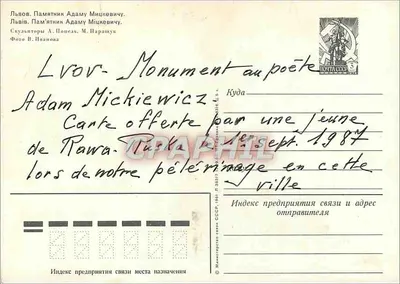 Львов. Памятник Адаму Мицкевичу.
Львів. Пам'ятник Адаму Міцкевичу.
Скульпторы А. Попель, М. Паращук
Фото В. Иванова
Lvov - Monument au poète
Adam Mickiewicz.
Carte offerte par une jeune
de Rawa-Ruska le 1er sept. 1987
lors de notre pélérinage en cette
ville
Куда
Индекс предприятия связи и адрес
отправителя
Индекс предприятия связи места назначения
GRAPHIL